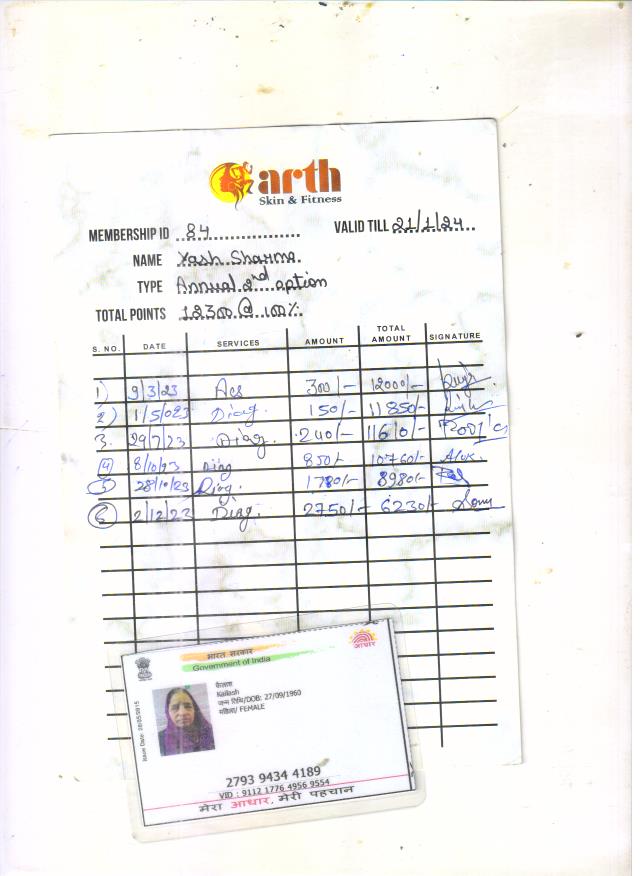 arth
Skin & Fitness
MEMBERSHIP ID 84 VALID TILL 21/1/24
NAME Yash Sharma.
TYPE Annual 2nd option
TOTAL POINTS 12300 @ 100%
S. NO. DATE SERVICES AMOUNT TOTAL AMOUNT SIGNATURE
1) 9/3/23 300/- 12000/-
2) 1/5/023 Diag. 150/- 11850/-
3. 29/7/23 Diag. 240/- 11610/-
4 8/10/23 Diag 850/- 10760/-
5 28/10/23 Diag. 1780/- 8980/-
6 2/12/23 Diag. 2750/- 6230/-
भारत सरकार
Government of India
आधार
Issue Date: 28/05/2015
कैलाश
Kailash
जन्म तिथि/DOB: 27/09/1960
महिला/ FEMALE
2793 9434 4189
VID : 9112 1776 4956 9554
मेरा आधार, मेरी पहचान